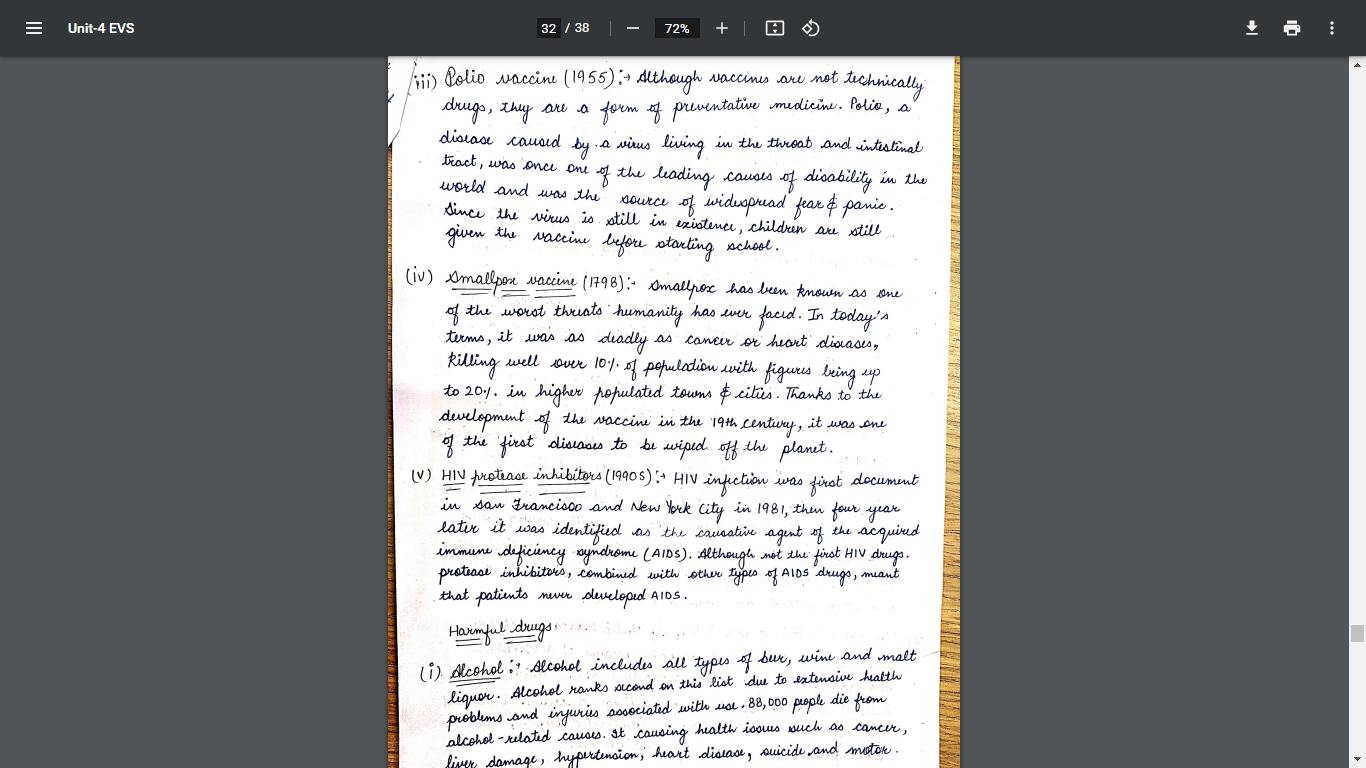 Unit-4 EVS
32 / 38
72%
iii) Polio vaccine (1955):→ Although vaccines are not technically
drugs, they are a form of preventative medicine. Polio, a
disease caused by a virus living in the throat and intestinal
tract, was once one of the leading causes of disability in the
world and was the source of widespread fear & panic.
Since the virus is still in existence, children are still
given the vaccine before starting school.
(iv) Smallpox vaccine (1798):- Smallpox has been known as one
of the worst threats humanity has ever faced. In today's
terms, it was as deadly as cancer or heart diseases,
killing well over 10% of population with figures being up
to 20%. in higher populated towns & cities. Thanks to the
development of the vaccine in the 19th century, it was one
of the first diseases to be wiped off the planet.
(v) HIV protease inhibitors (1990s):→ HIV infection was first document
in San Francisco and New York City in 1981, then four year
later it was identified as the causative agent of the acquired
immune deficiency syndrome (AIDS). Although not the first HIV drugs.
protease inhibitors, combined with other types of AIDS drugs, meant
that patients never developed AIDS.
Harmful drugs
(i) Alcohol:→ Alcohol includes all types of beer, wine and malt
liquor. Alcohol ranks second on this list due to extensive health
problems and injuries associated with use. 88,000 people die from
alcohol-related causes. It causing health issues such as cancer,
liver damage, hypertension, heart disease, suicide and motor.